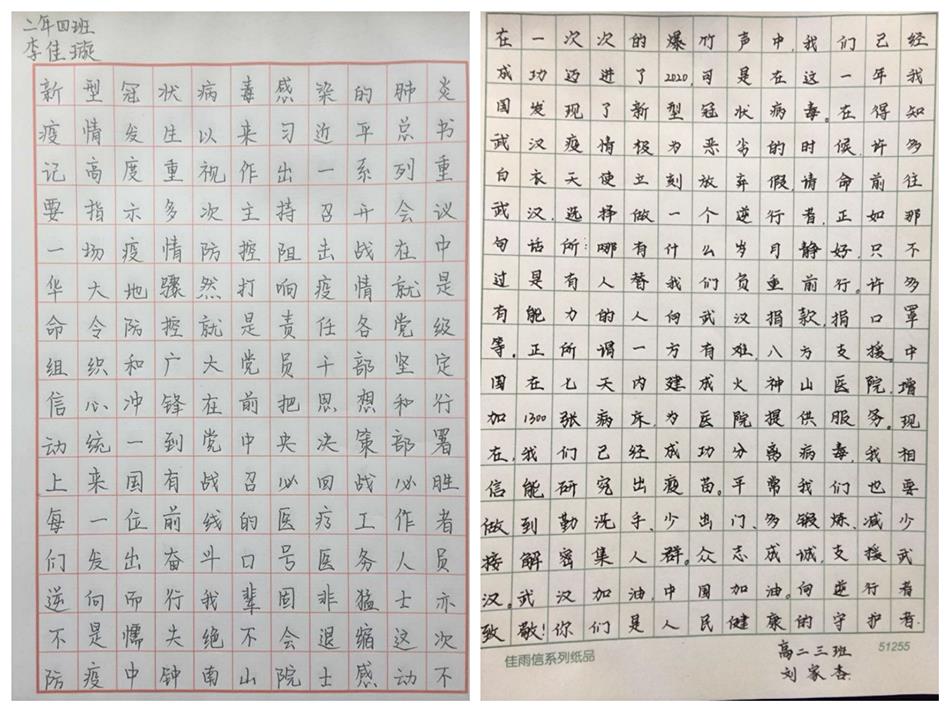 二年四班
李佳璇
新型冠状病毒感染的肺炎
疫情发生以来习近平总书
记高度重视作出一系列重
要指示多次主持召开会议
一场疫情防控阻击战在中
华大地骤然打响疫情就是
命令防控就是责任各党级
组织和广大党员干部坚定
信心冲锋在前把思想和行
动统一到党中央决策部署
上来国有战召必回战必胜
每一位前线的医疗工作者
们发出奋斗口号医务人员
逆向而行我辈固非猛士亦
不是懦夫绝不会退缩这次
防疫中钟南山院士感动不
在一次次的爆竹声中,我们已经
成功迈进了2020,可是在这一年我
国发现了新型冠状病毒。在得知
武汉疫情极为恶劣的时候,许多
白衣天使立刻放弃假,请命前往
武汉,选择做一个逆行者,正如那
句话所:哪有什么岁月静好,只不
过是有人替我们负重前行。许多
有能力的人向武汉捐款,捐口罩
等。正所谓一方有难,八方支援。中
国在七天内建成火神山医院,增
加1300张病床,为医院提供服务。现
在,我们已经成功分离病毒,我相
信能研究出疫苗。平常我们也要
做到勤洗手、少出门、多锻炼、减少
接解密集人群。众志成城,支援武
汉。武汉加油,中国加油。向逆行者
致敬!你们是人民健康的守护者.
佳雨信系列纸品
51255
高二三班
刘家杏